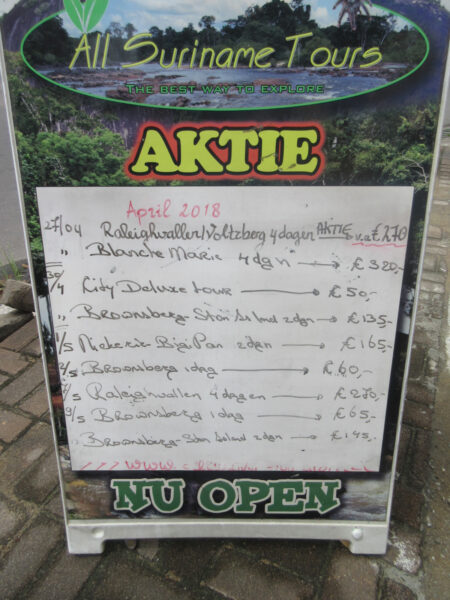 All Suriname Tours
THE BEST WAY TO EXPLORE
AKTIE
April 2018
27/04 Raleighvallen/Voltzberg 4 dagen AKTIE v.a € 270
" Blanche Marie 4 dgn → € 320,-
30/4 City Deluxe tour → € 50,-
" Brownsberg - Ston Eiland 2dgn → € 135,-
1/5 Nickerie Bigi Pan 2dgn → € 165,-
Brownsberg 1dag → € 60,-
Raleighvallen 4 dagen → € 270,-
Brownsberg 1dag → € 65,-
" Brownsberg - Ston Eiland 2dgn → € 145,-
www
NU OPEN